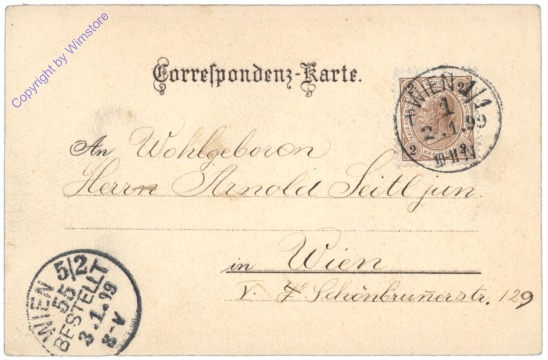 Copyright by Wimstore
Correspondenz-Karte.
WIEN 1/1
1
2.1.99
An Wohlgeboren
Herrn Arnold Seitl jun.
in Wien
V. Schönbrunerstr. 129
WIEN 5/2
55
BESTELLT
3.1.99
8-V